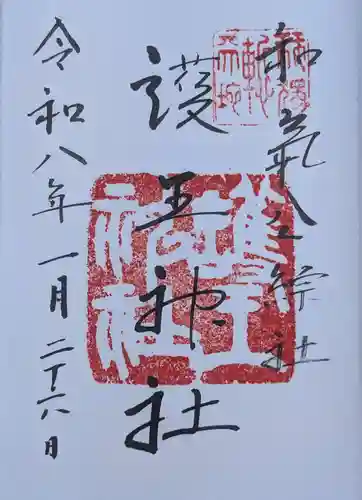 和氣公綜社
護王神社
令和八年一月二十六日
護王神社